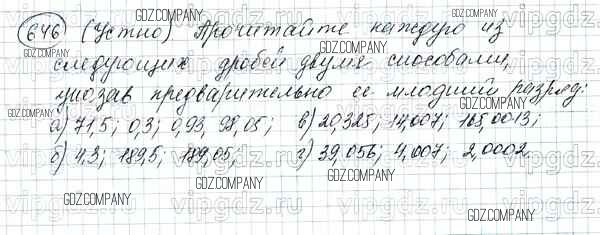 646 (Устно) Прочитайте каждую из
следующих дробей двумя способами,
указав предварительно ее младший разряд:
а) 71,5; 0,3; 0,93, 98,05; в) 20,325; 14,007; 165,0013;
б) 4,3; 189,5; 189,05; г) 39,056; 4,007; 2,0002
GDZ.COMPANY
vipgdz.ru